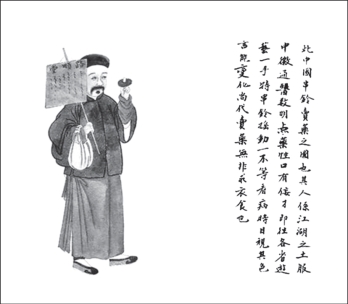 此中國串鈴賣藥之圖也其人係江湖之士服
中微通醫数明点藥性口有佞才即往各省遊
藝一手持串鈴揺動一不等看病時目視其色
言既變化尚代賣藥無非求衣食也